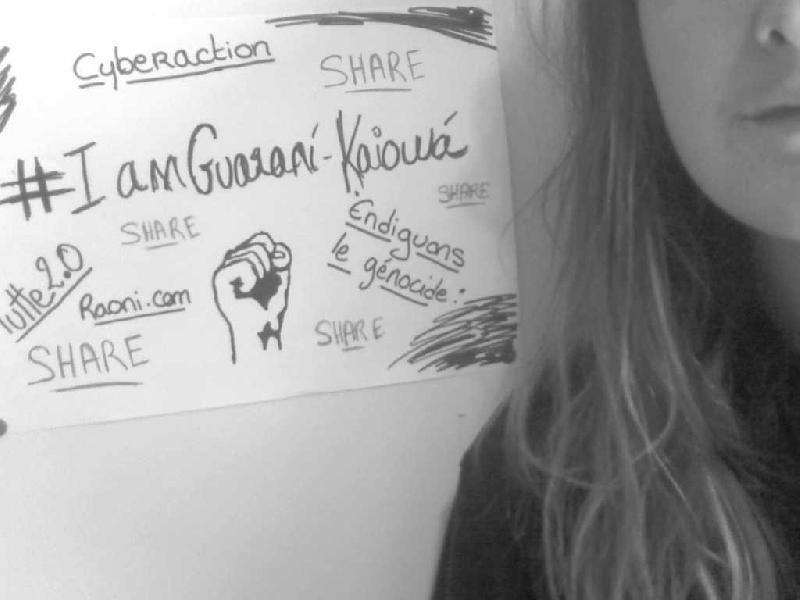 Cyberaction
SHARE
#I am Guarani-Kaiowá
SHARE
SHARE
Endiguons
le génocide:
lutte 2.0
Raoni.com
SHARE
SHARE